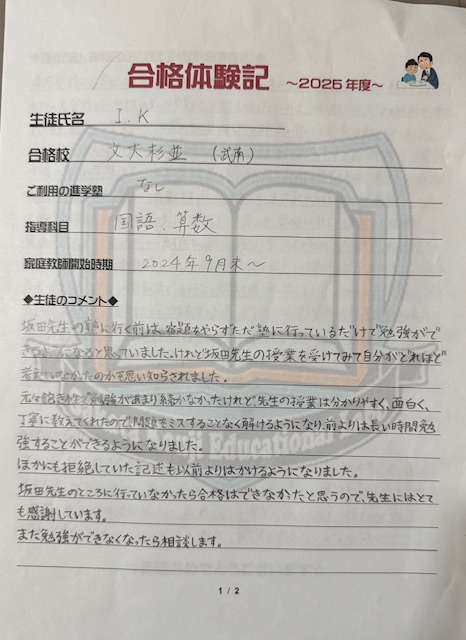 合格体験記 ～2025年度～
生徒氏名 I.K
合格校 文大杉並 (武南)
ご利用の進学塾 なし
指導科目 国語、算数
家庭教師開始時期 2024年9月末～
◆生徒のコメント◆
坂田先生の塾に行く前は、宿題をやらずただ塾に行っているだけで勉強がで
きるようになると思っていました。けれど坂田先生の授業を受けてみて自分がどれほど
考えていなかったのかを思い知らされました。
元々飽き性で勉強があまり続かなかったけれど先生の授業は分かりやすく、面白く、
丁寧に教えてくれたので、問題をミスすることなく解けるようになり、前よりは長い時間勉
強することができるようになりました。
ほかにも拒絶していた記述も以前よりはかけるようになりました。
坂田先生のところに行っていなかったら合格はできなかったと思うので、先生にはとて
も感謝しています。
また勉強ができなくなったら相談します。
Educational
1 / 2